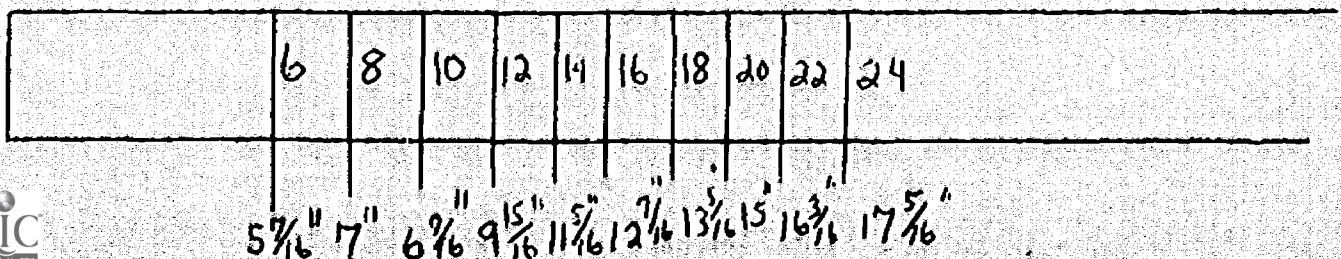 6 8 10 12 14 16 18 20 22 24
5 7/16" 7" 6 9/16" 9 15/16" 11 5/16" 12 7/16" 13 5/16 15" 16 3/16" 17 5/16"
IC